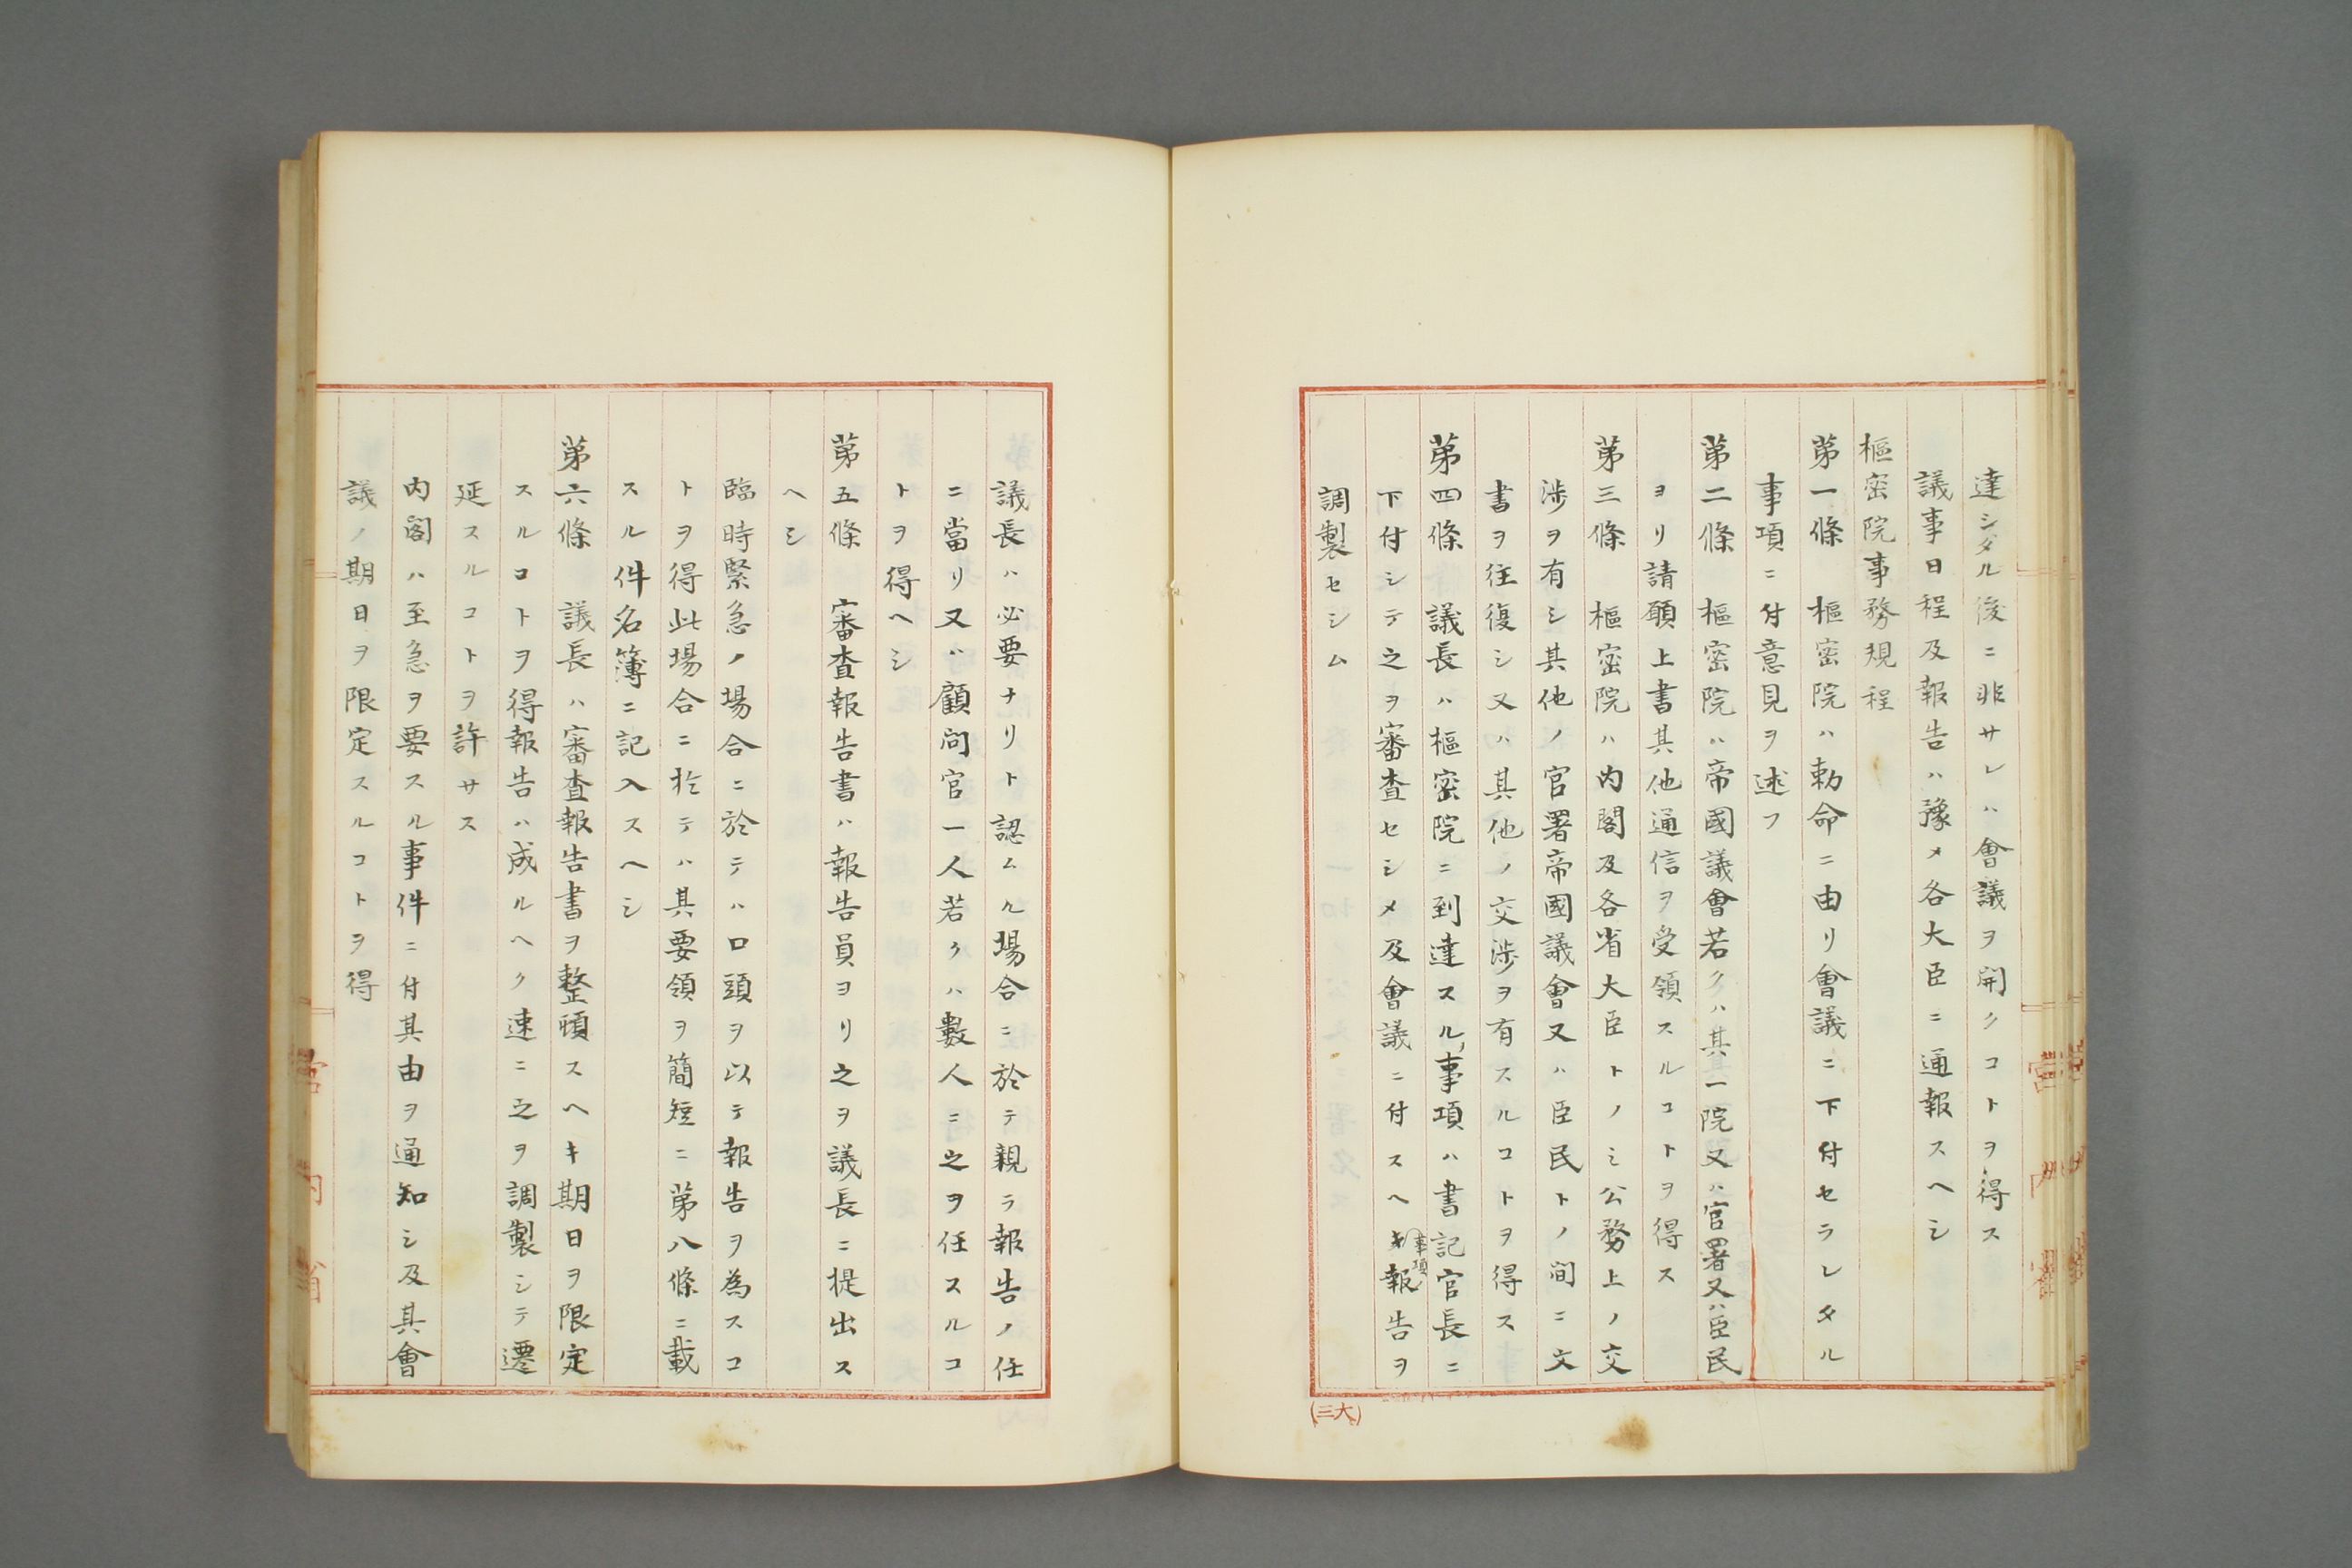 達シタル後ニ非サレハ會議ヲ開クコトヲ得ス
議事日程及報告ハ豫メ各大臣ニ通報スヘシ
樞密院事務規程
第一條 樞密院ハ勅命ニ由リ會議ニ下付セラレタル
事項ニ付意見ヲ述フ
第二條 樞密院ハ帝國議會若クハ其一院又ハ官署又ハ臣民
ヨリ請願上書其他通信ヲ受領スルコトヲ得ス
第三條 樞密院ハ内閣及各省大臣トノミ公務上ノ交
渉ヲ有シ其他ノ官署帝國議會又ハ臣民トノ間ニ文
書ヲ往復シ又ハ其他ノ交渉ヲ有スルコトヲ得ス
第四條 議長ハ樞密院ニ到達スル事項ハ書記官長ニ
下付シテ之ヲ審査セシメ及會議ニ付スヘキ事項ノ報告ヲ
調製セシム
議長ハ必要ナリト認ムル場合ニ於テ親ラ報告ノ任
ニ當リ又ハ顧問官一人若クハ數人ニ之ヲ任スルコ
トヲ得ヘシ
第五條 審査報告書ハ報告員ヨリ之ヲ議長ニ提出ス
ヘシ
臨時緊急ノ場合ニ於テハ口頭ヲ以テ報告ヲ為スコ
トヲ得此場合ニ於テハ其要領ヲ簡短ニ第八條ニ載
スル件名簿ニ記入スヘシ
第六條 議長ハ審査報告書ヲ整頓スヘキ期日ヲ限定
スルコトヲ得報告ハ成ルヘク速ニ之ヲ調製シテ遷
延スルコトヲ許サス
内閣ハ至急ヲ要スル事件ニ付其由ヲ通知シ及其會
議ノ期日ヲ限定スルコトヲ得
宮内省
(大三)